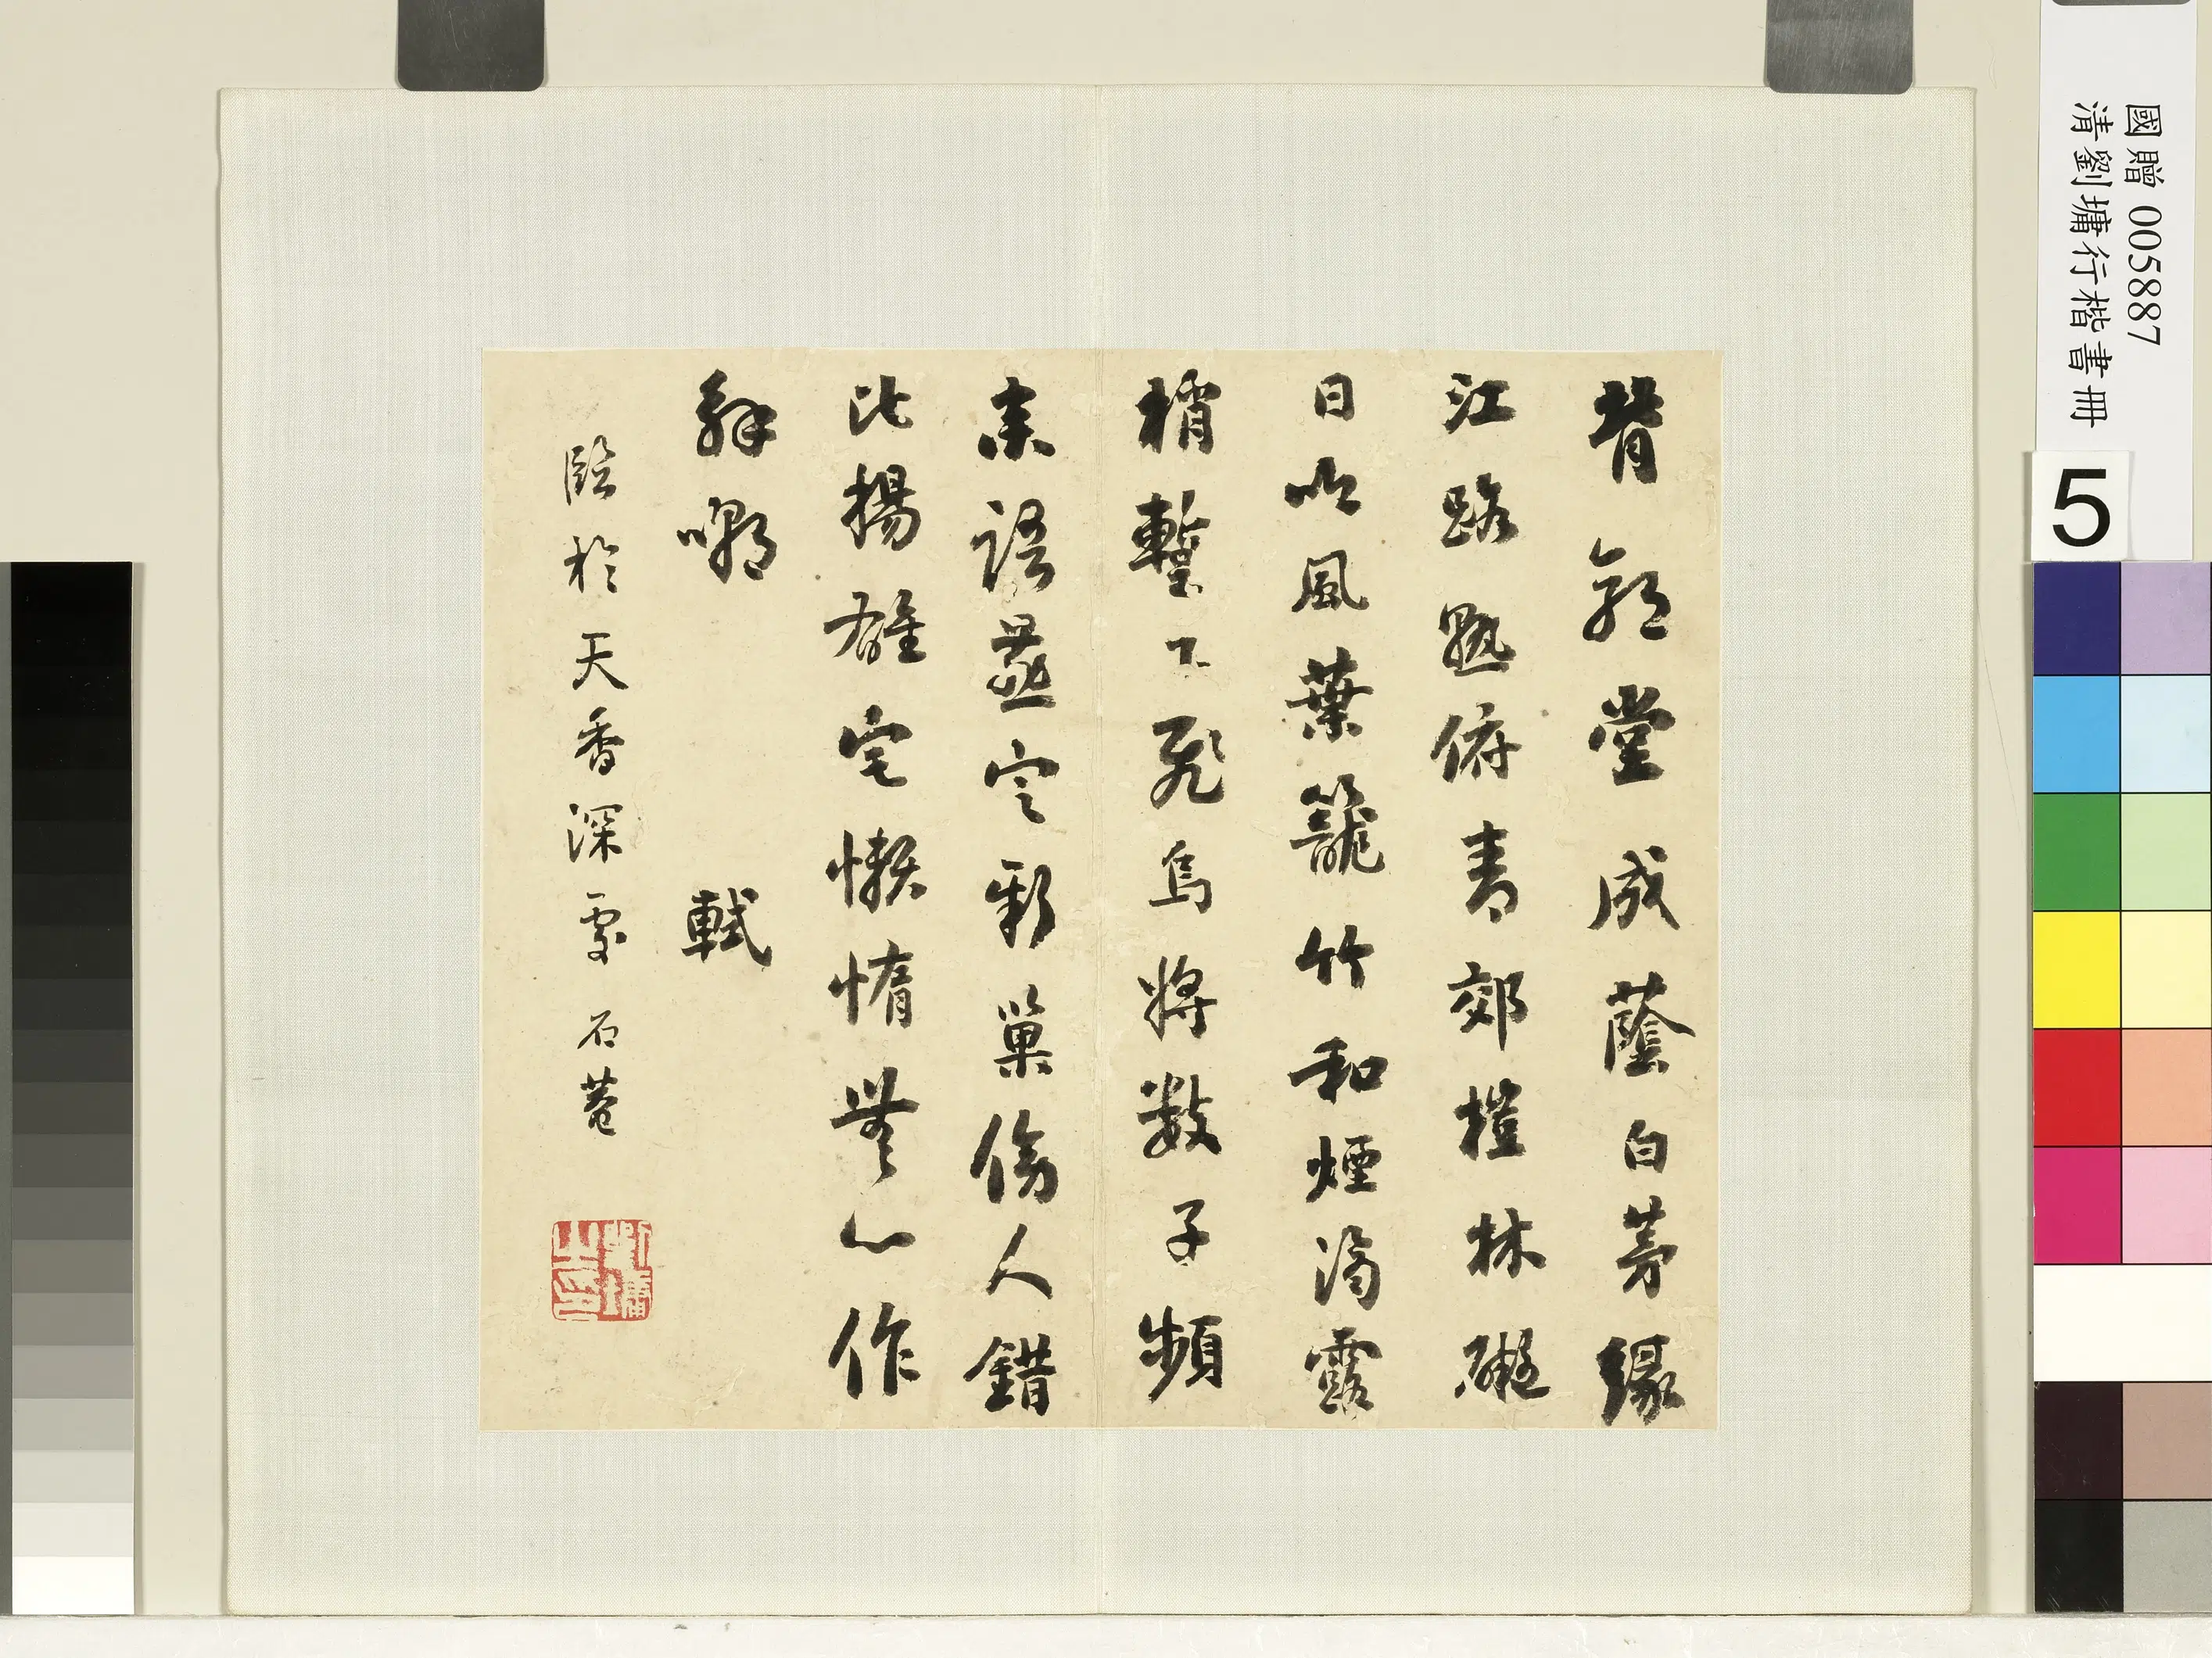 國贈 005887
清劉墉行楷書冊
5
背郭堂成蔭白茅緣
江路熟俯青郊榿林礙
日吟風葉籠竹和煙滴露
梢蹔下飛烏將數子頻
來語燕定新巢傍人錯
比揚雄宅懶惰無心作
解嘲 軾
臨於天香深處 石菴
劉墉之印